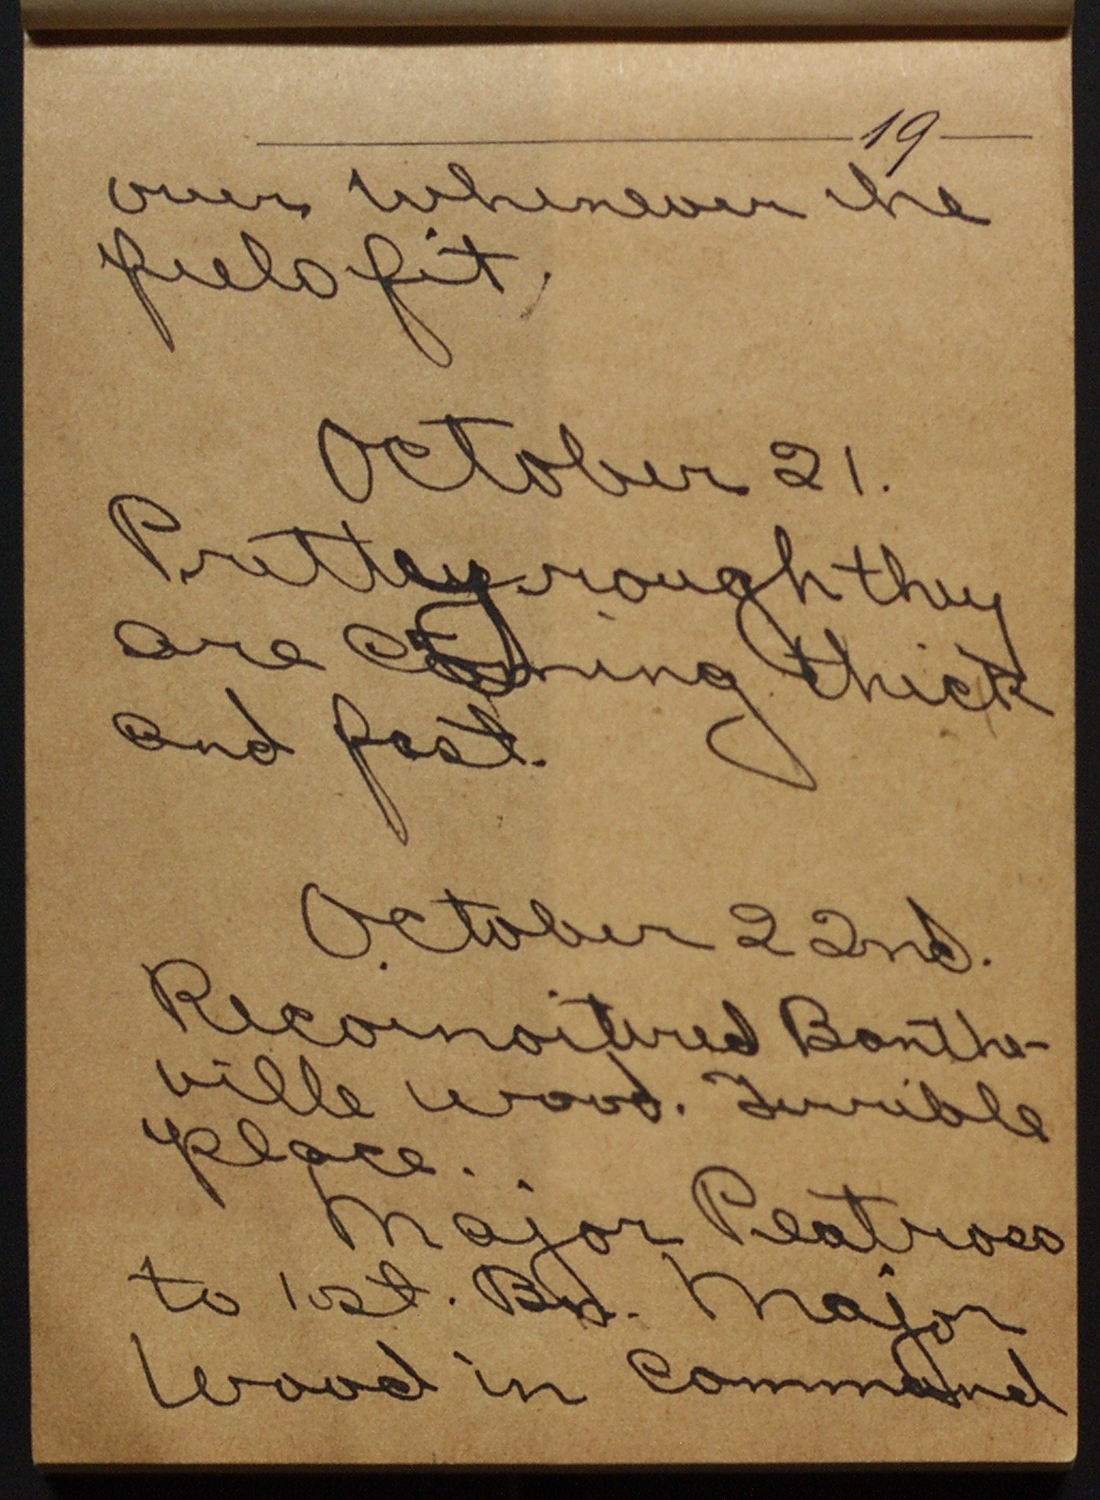 19
over whenever he
feels fit.
October 21.
Prettey rough they
are coming thick
and fast.
October 22nd.
Recornoitered Banthe-
ville wood. Terrible
place.
Major Peatross
to 1st. Bn. Major
Wood in command